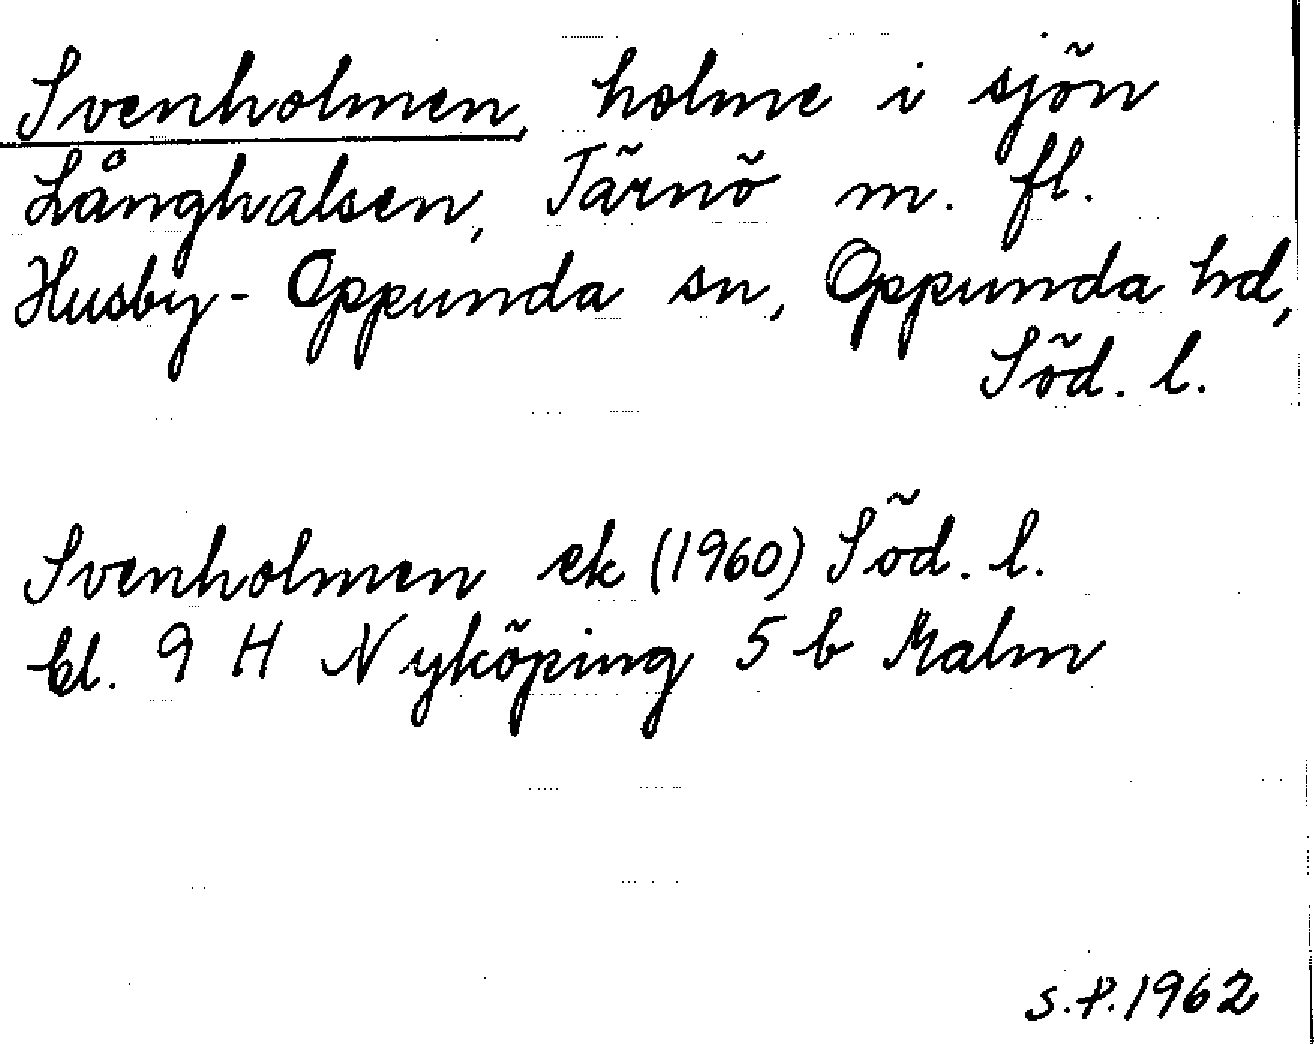 Svenholmen, holme i sjön
Långhalsen, Tärnö m. fl.
Husby-Oppunda sn, Oppunda hd,
Söd. l.
Svenholmen ek (1960) Söd. l.
bl. 9 H Nyköping 5 b Malm
S.P. 1962